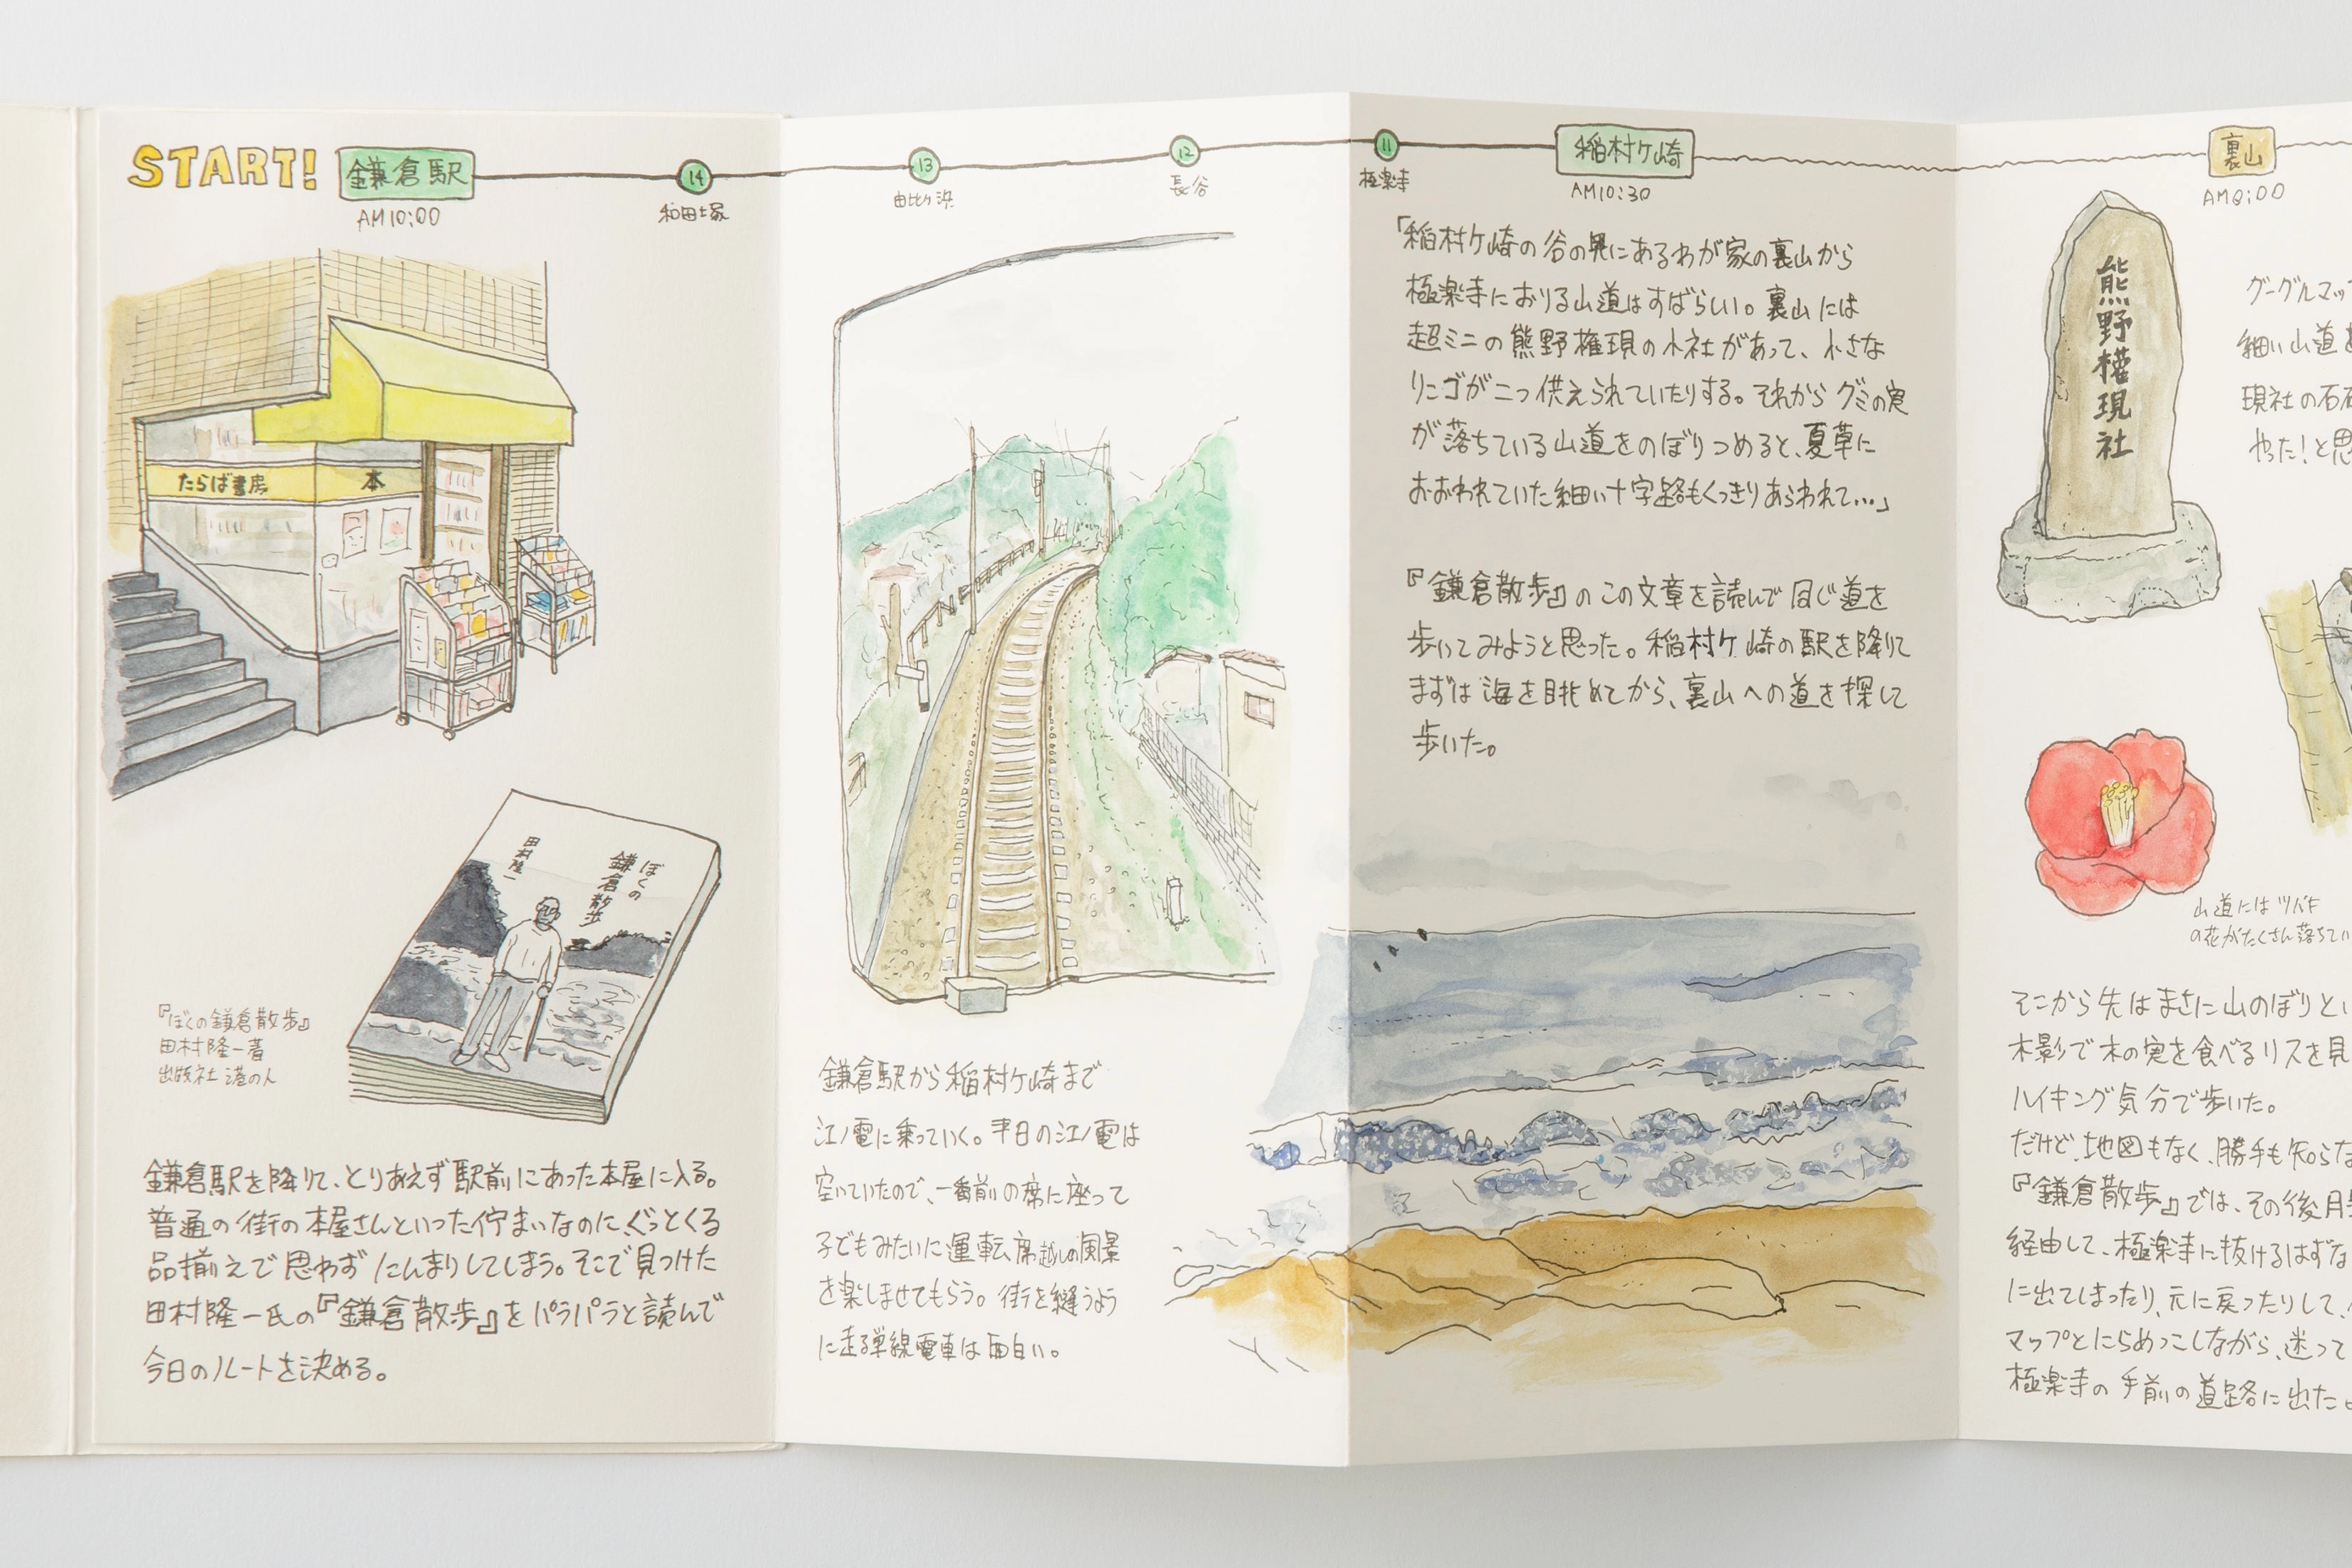 START!
鎌倉駅
AM10:00
14
和田塚
13
由比ヶ浜
12
長谷
11
極楽寺
稲村ヶ崎
AM10:30
裏山
たらば書房 本
ぼくの
鎌倉散歩
田村隆一
『ぼくの鎌倉散歩』
田村隆一著
出版社 港の人
鎌倉駅を降りて、とりあえず駅前にあった本屋に入る。
普通の街の本屋さんといった佇まいなのに、ぐっとくる
品揃えで思わずにんまりしてしまう。そこで見つけた
田村隆一氏の『鎌倉散歩』をパラパラと読んで
今日のルートを決める。
鎌倉駅から稲村ヶ崎まで
江ノ電に乗っていく。平日の江ノ電は
空いていたので、一番前の席に座って
子どもみたいに運転席越しの風景
を楽しませてもらう。街を縫うよう
に走る単線電車は面白い。
「稲村ヶ崎の谷の奥にあるわが家の裏山から
極楽寺におりる山道はすばらしい。裏山には
超ミニの熊野権現の小社があって、小さな
リンゴが二つ供えられていたりする。それからグミの実
が落ちている山道をのぼりつめると、夏草に
おおわれていた細い十字路もくっきりあらわれて…」
『鎌倉散歩』のこの文章を読んで同じ道を
歩いてみようと思った。稲村ヶ崎の駅を降りて
まずは海を眺めてから、裏山への道を探して
歩いた。
熊野権現社
グーグルマッ
細い山道
現社の石
やった！と思
山道にはツバキ
の花がたくさん落ちてい
そこから先はまさに山のぼりとい
木影で木の実を食べるリスを見
ハイキング気分で歩いた。
だけど、地図もなく、勝手も知らな
『鎌倉散歩』では、その後月
経由して、極楽寺に抜けるはずな
に出てしまったり、元に戻ったりして、
マップとにらめっこしながら、迷って
極楽寺の手前の道路に出た